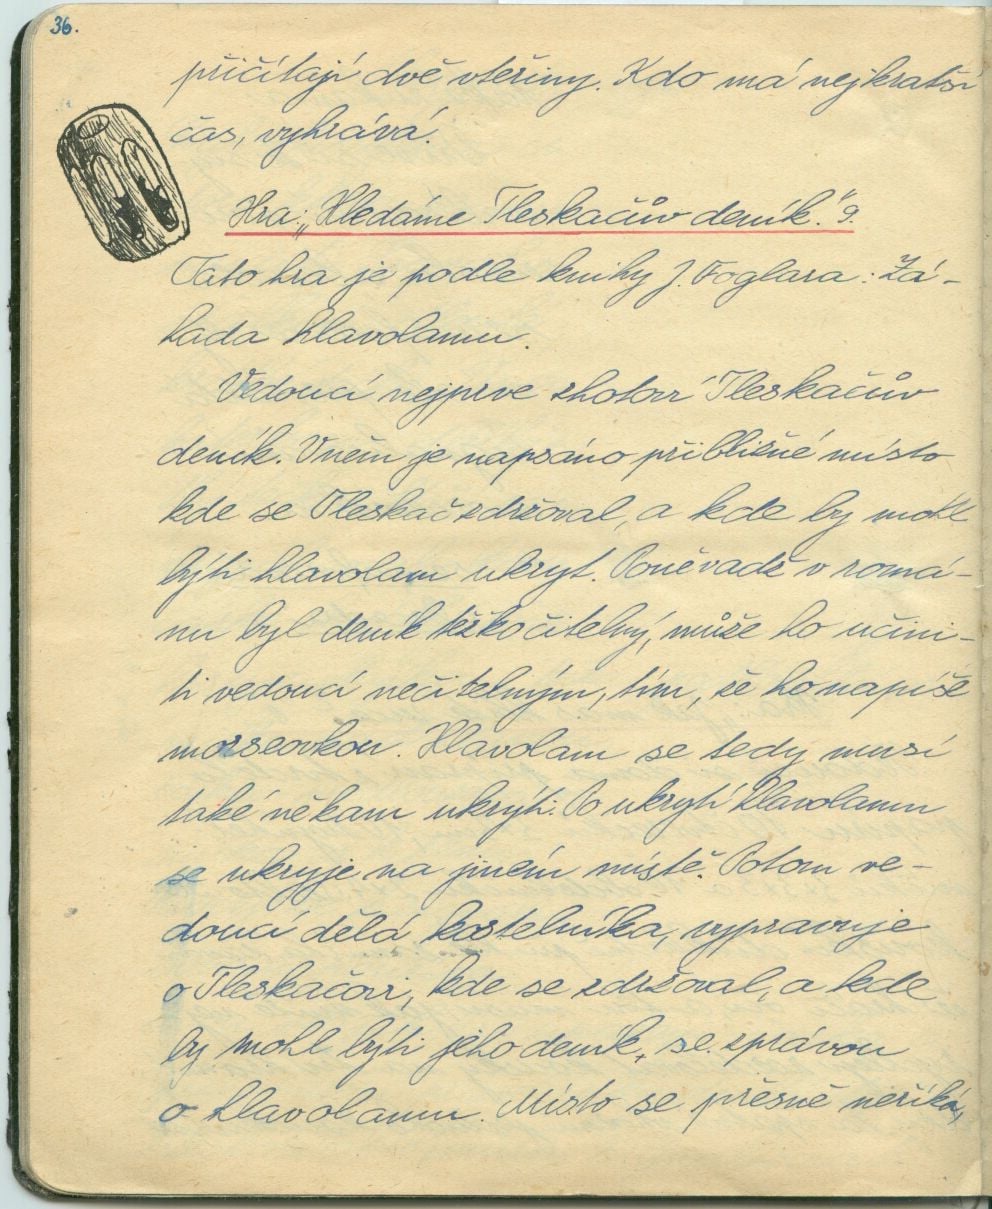 36.
přičítají dvě vteřiny. Kdo má nejkratší
čas, vyhrává.
Hra: „Hledáme Tleskačův deník." 9.
Tato hra je podle knihy J. Foglara: Zá-
hada hlavolamu.
Vedoucí nejprve zhotoví Tleskačův
deník. V něm je napsáno přibližné místo
kde se Tleskač zdržoval, a kde by mohl
býti hlavolam ukryt. Poněvadž v romá-
nu byl deník těžko čitelný, může ho učini-
ti vedoucí nečitelným, tím, že ho napíše
morseovkou. Hlavolam se tedy musí
také někam ukrýti. Po ukrytí hlavolamu
se ukryje na jiném místě. Potom ve-
doucí dělá kostelníka, vypravuje
o Tleskačovi, kde se zdržoval, a kde
by mohl býti jeho deník, se zprávou
o hlavolamu. Místo se přesně neříká,